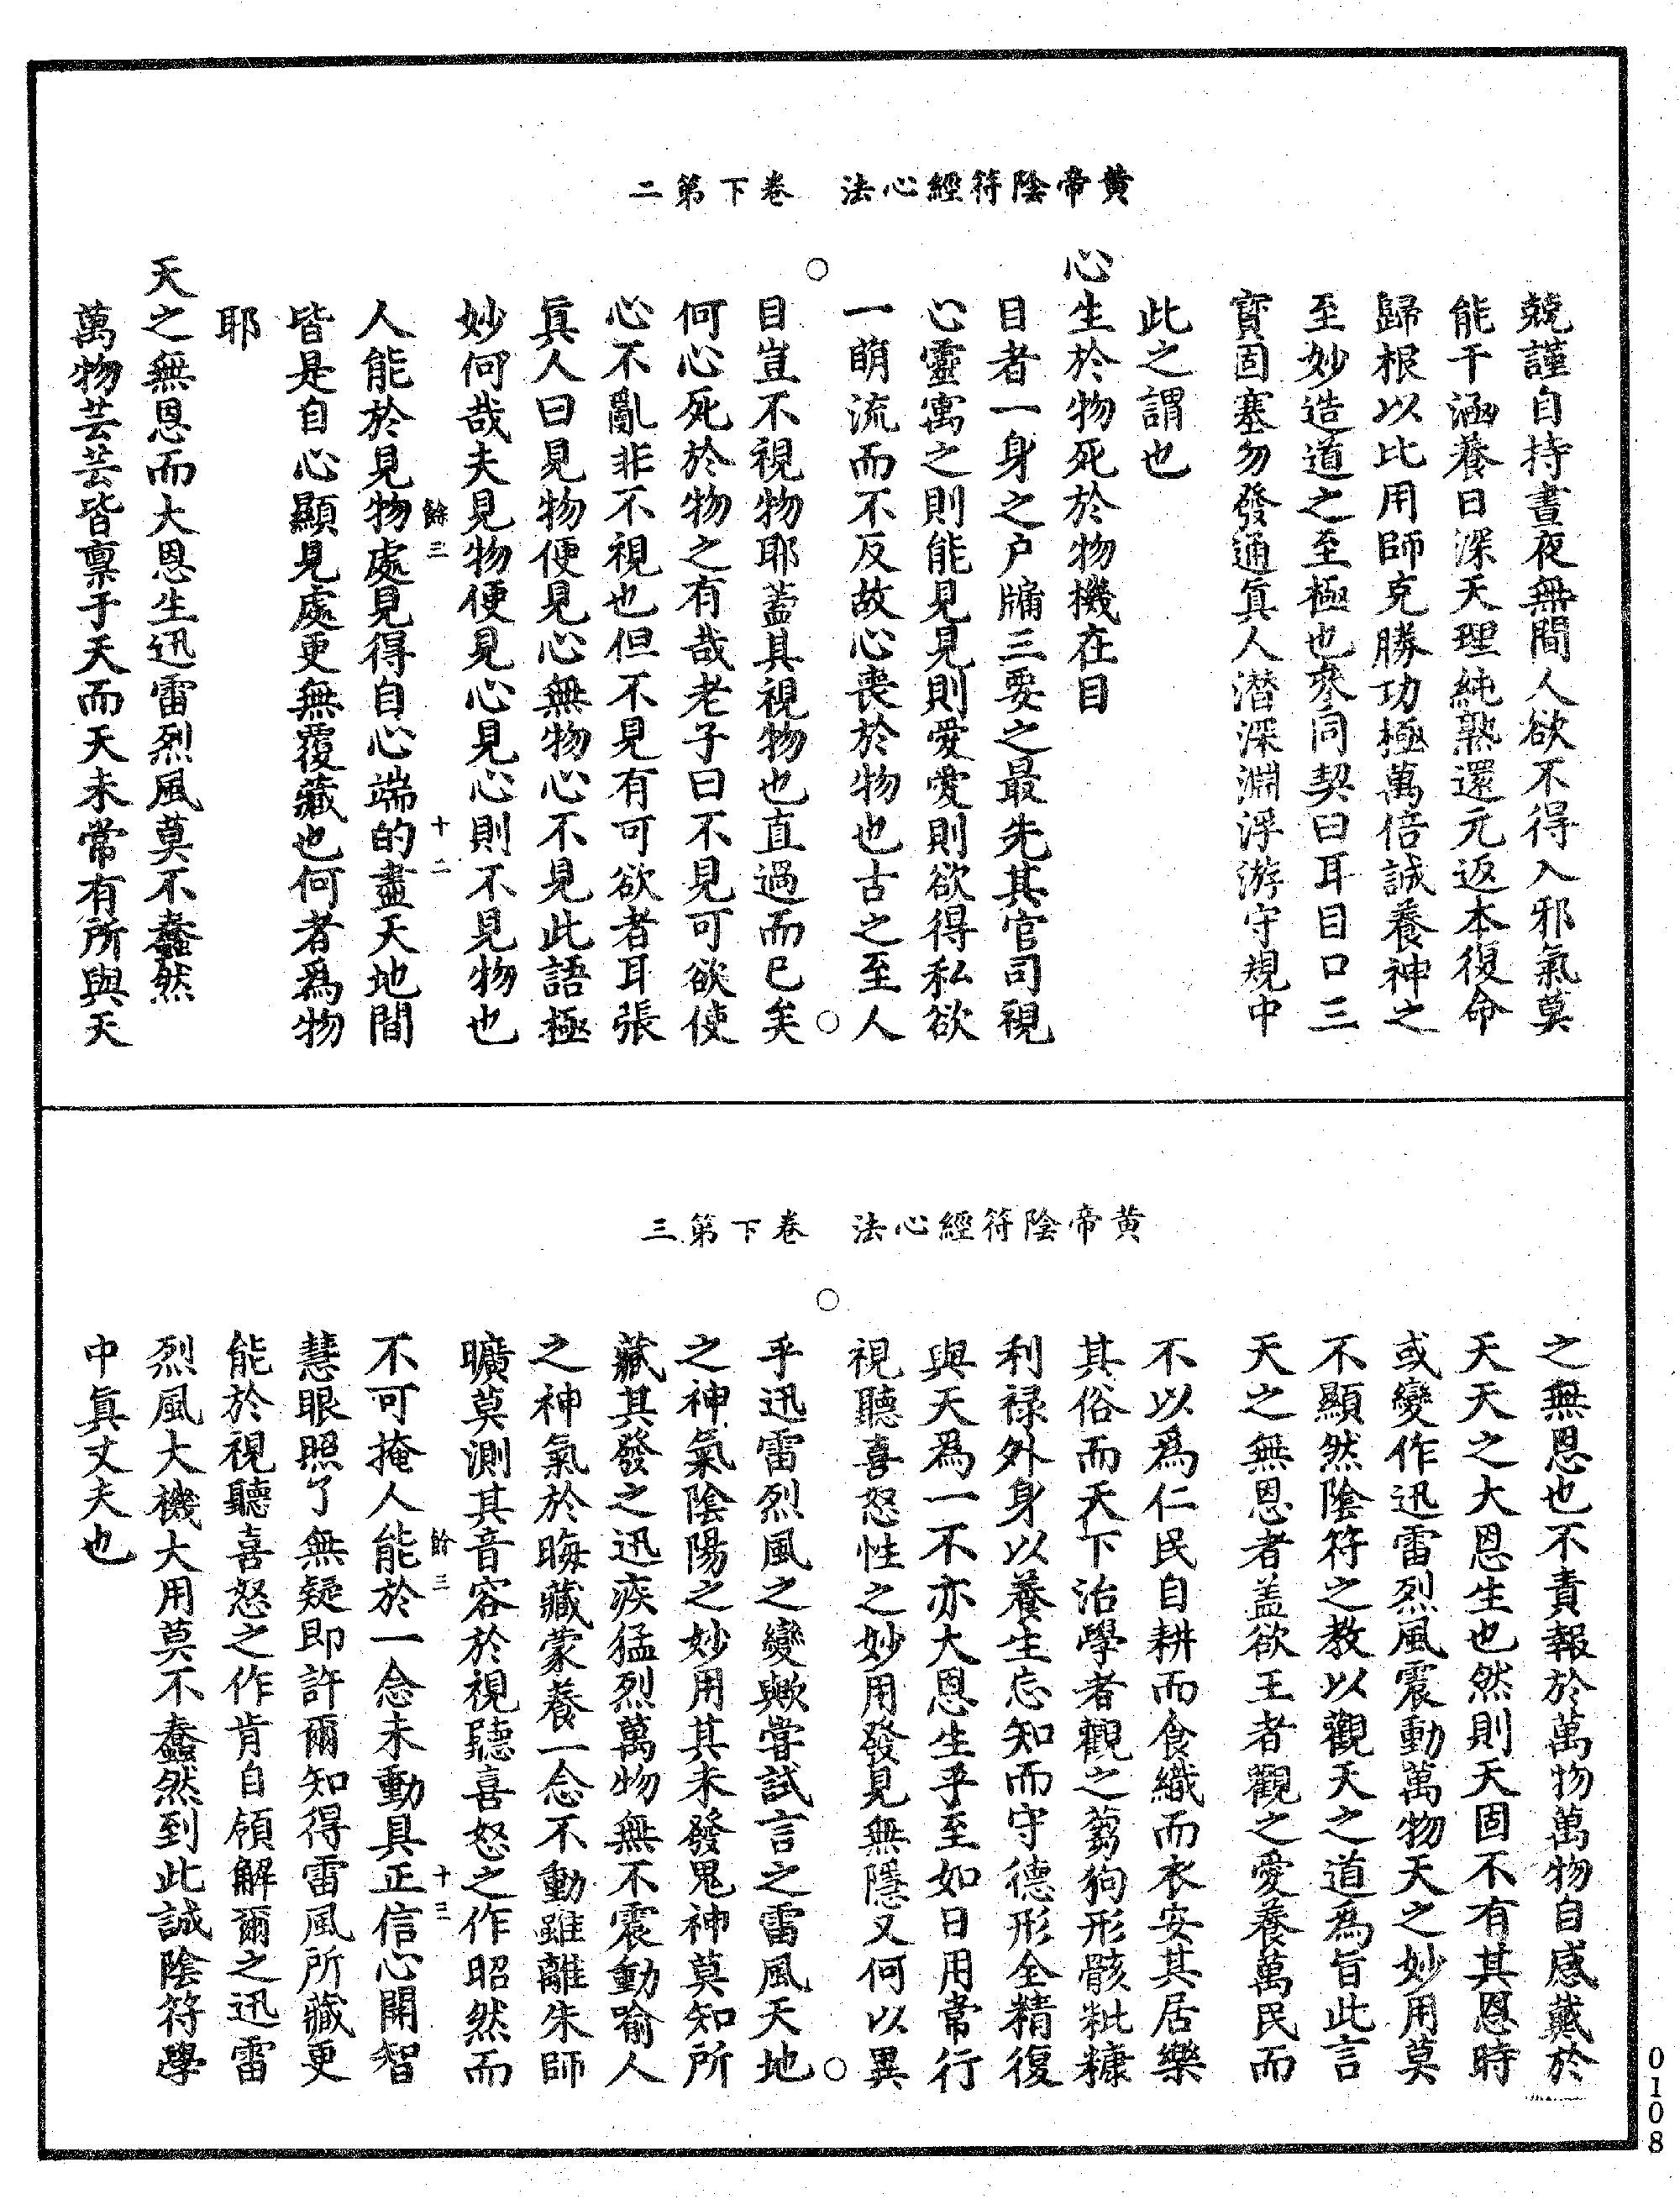 黃帝陰符經心法　卷下第二
兢謹自持晝夜無間人欲不得入邪氣莫
能干涵養日深天理純熟還元返本復命
歸根以比用師克勝功極萬倍誠養神之
至妙造道之至極也參同契曰耳目口三
寳固塞勿發通眞人潛深淵浮游守規中
此之謂也
心生於物死於物機在目
目者一身之户牖三要之最先其官司視
心靈寓之則能見見則愛愛則欲得私欲
一萌流而不反故心喪於物也古之至人
目豈不視物耶蓋具視物也直過而已矣
何心死於物之有哉老子曰不見可欲使
心不亂非不視也但不見有可欲者耳張
眞人曰見物便見心無物心不見此語極
妙何哉夫見物便見心見心則不見物也
餘三　十二
人能於見物處見得自心端的盡天地間
皆是自心顯見處更無覆藏也何者爲物
耶
天之無恩而大恩生迅雷烈風莫不蠢然
萬物芸芸皆稟于天而天未常有所與天
黃帝陰符經心法　卷下第三
之無恩也不責報於萬物萬物自感戴於
天天之大恩生也然則天固不有其恩時
或變作迅雷烈風震動萬物天之妙用莫
不顯然陰符之教以觀天之道爲旨此言
天之無恩者盖欲王者觀之愛養萬民而
不以爲仁民自耕而食織而衣安其居樂
其俗而天下治學者觀之蒭狗形骸粃糠
利祿外身以養生忘知而守德形全精復
與天爲一不亦大恩生乎至如日用常行
視聽喜怒性之妙用發見無隱又何以異
乎迅雷烈風之變歟嘗試言之雷風天地
之神氣陰陽之妙用其未發鬼神莫知所
藏其發之迅疾猛烈萬物無不震動喻人
之神氣於晦藏蒙養一念不動雖離朱師
曠莫測其音容於視聽喜怒之作昭然而
餘三　十三
不可掩人能於一念未動具正信心開智
慧眼照了無疑即許爾知得雷風所藏更
能於視聽喜怒之作肯自領解爾之迅雷
烈風大機大用莫不蠢然到此誠陰符學
中眞丈夫也
0108